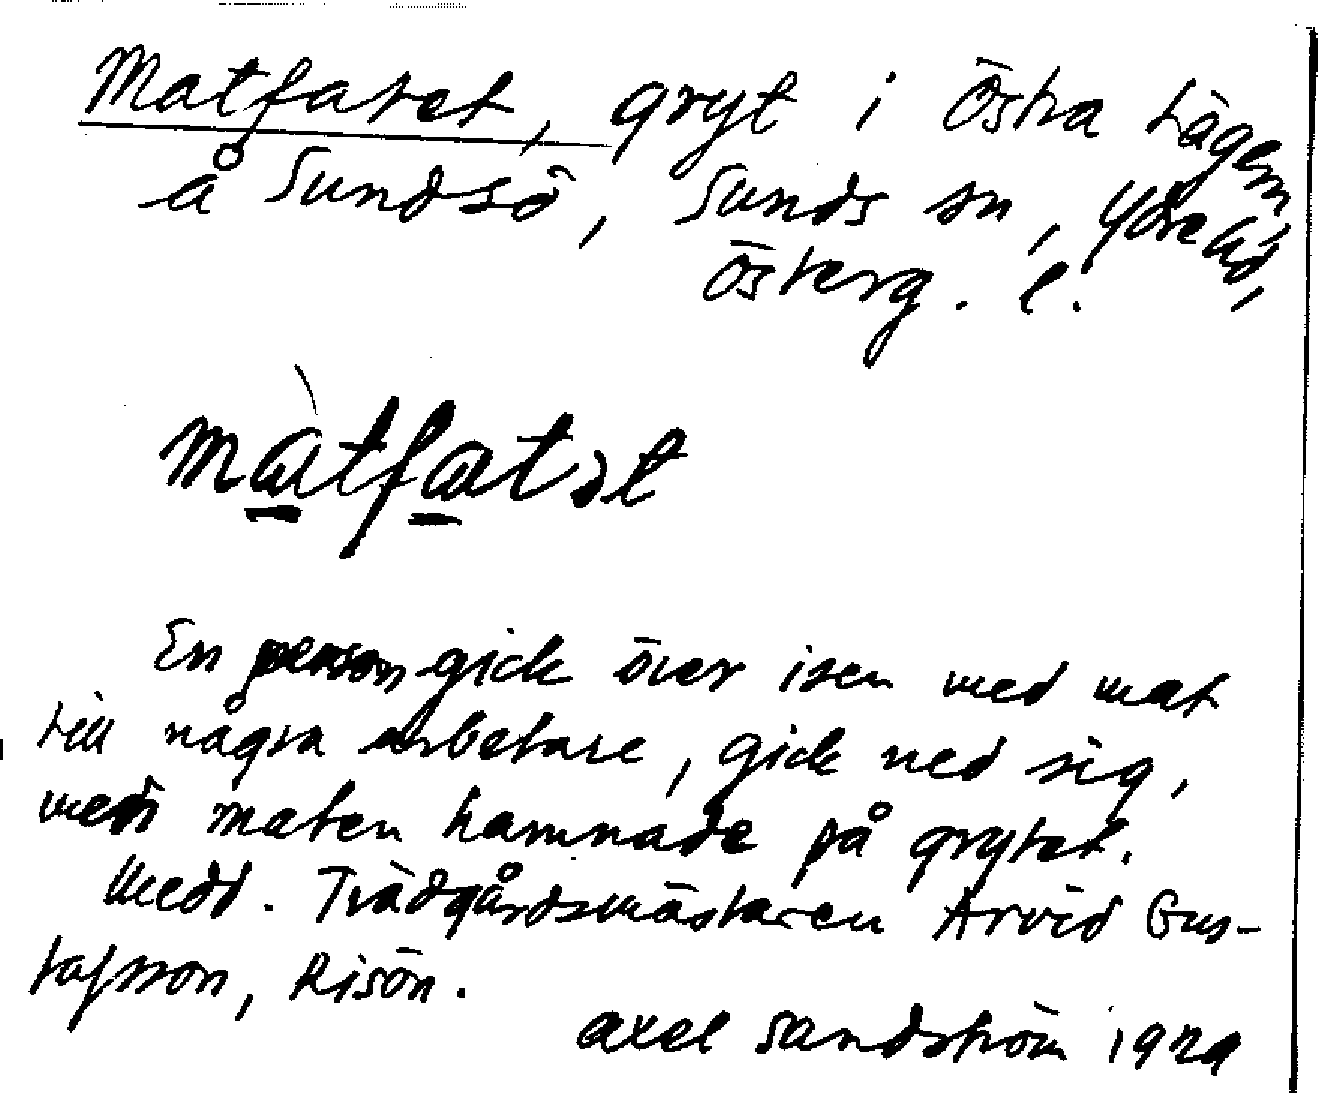 Matfatet, gryt i Östra Lägern
å Sundsö, Sunds sn, Ydre hd,
Österg. l.
màtfatət
En person gick över isen med mat
till några arbetare, gick ned sig,
men maten hamnade på grytet.
Medd. Trädgårdsmästaren Arvid Gus-
tafsson, Risön.
Axel Sandström 1929